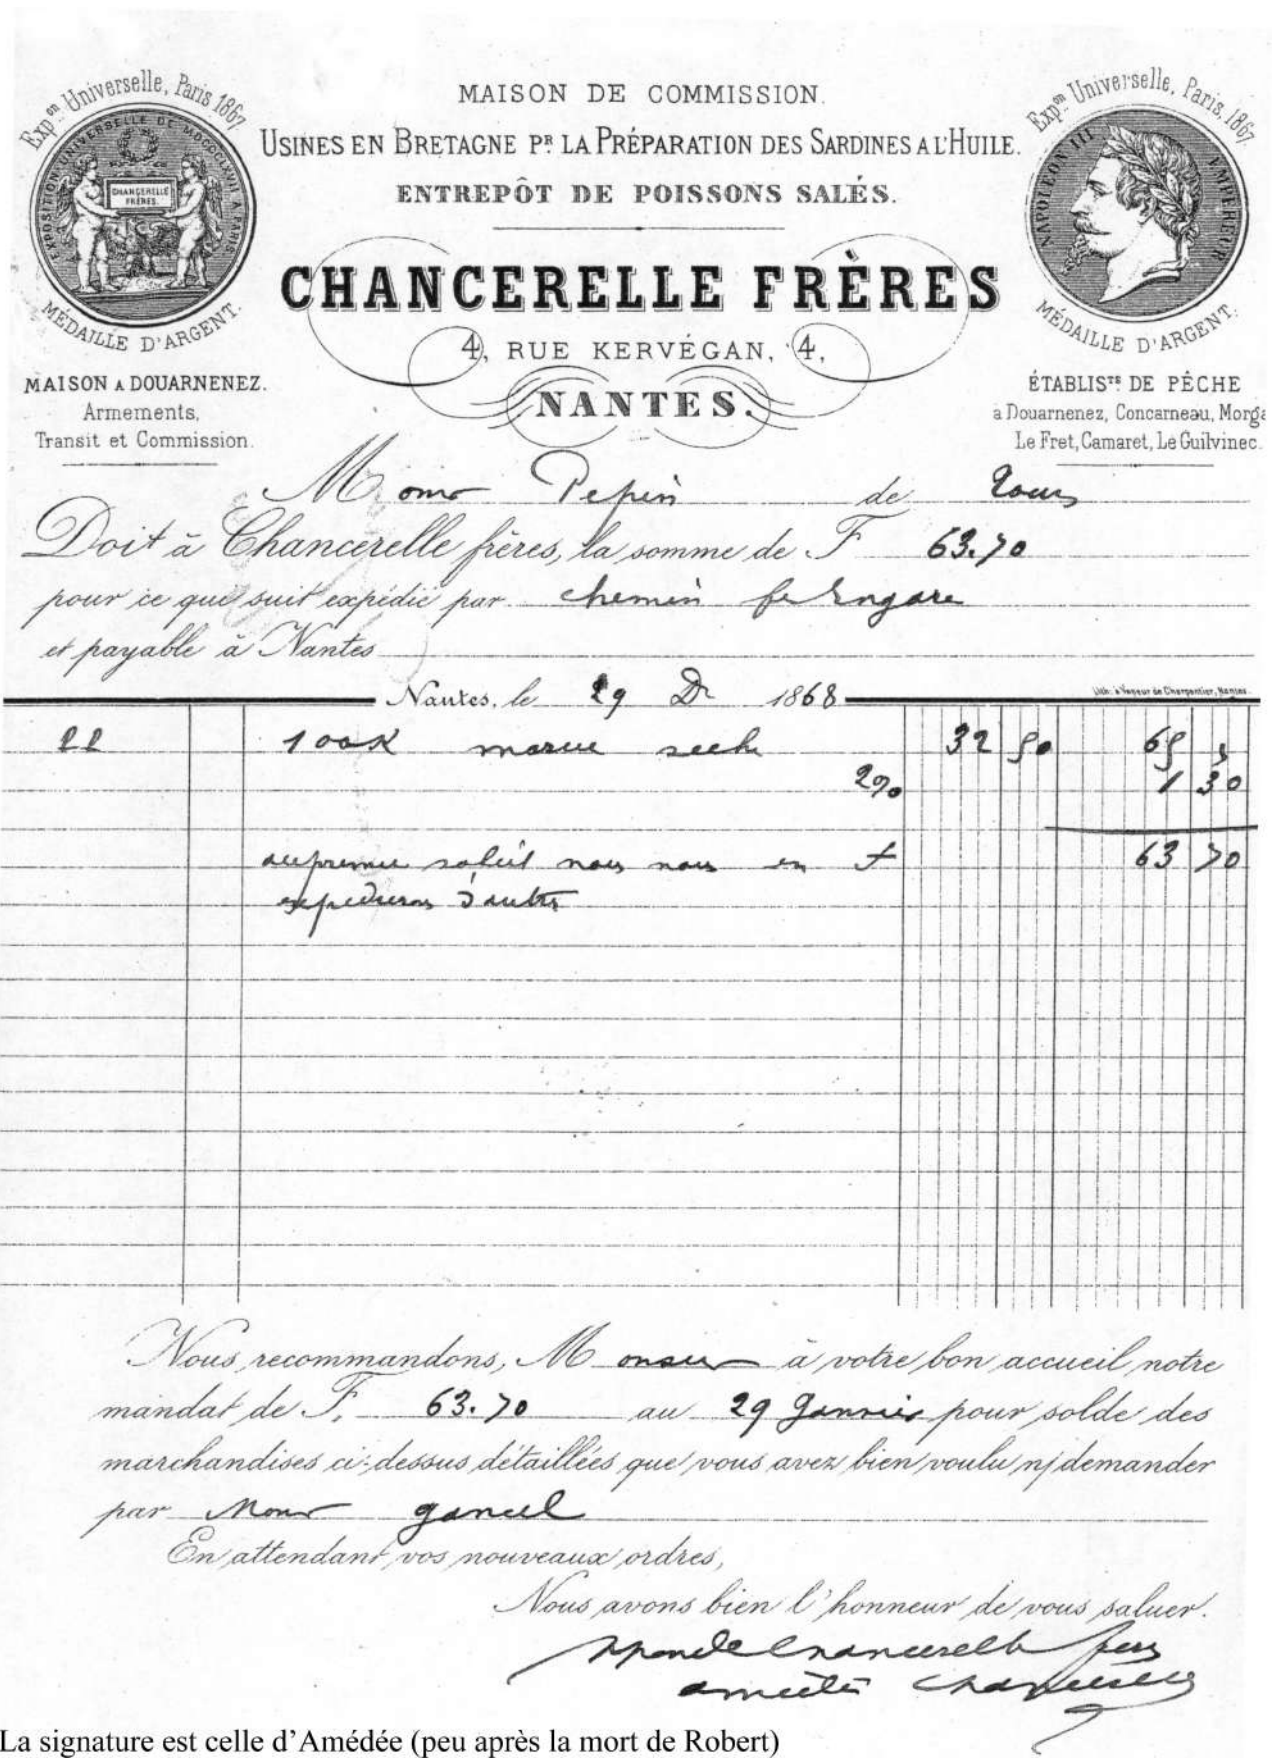 Expon Universelle, Paris 1867
EXPOSITION UNIVERSELLE DE MDCCCLXVII A PARIS
CHANCERELLE
FRÈRES.
MÉDAILLE D'ARGENT.
MAISON DE COMMISSION.
USINES EN BRETAGNE PR LA PRÉPARATION DES SARDINES A L'HUILE.
ENTREPÔT DE POISSONS SALÉS.
CHANCERELLE FRÈRES
4, RUE KERVÉGAN, 4,
NANTES.
Expon Universelle, Paris, 1867
NAPOLEON III EMPEREUR
MÉDAILLE D'ARGENT.
MAISON A DOUARNENEZ.
Armements,
Transit et Commission.
ÉTABLISTS DE PÊCHE
à Douarnenez, Concarneau, Morga
Le Fret, Camaret, Le Guilvinec.
Pepin de Tours
Doit à Chancerelle frères, la somme de F 63.70
pour ce qui suit expédié par chemin
et payable à Nantes
Nantes, le 29 Dr 1868
Lith. à Vapeur de Charpentier, Nantes.
100K morue seche 32 50 65
2% 1 30
au premier soleil nous en 63 70
expedierons d'autres
Nous recommandons, Monsieur à votre bon accueil notre
mandat de F. 63.70 au 29 Janvier pour solde des
marchandises ci-dessus détaillées que vous avez bien voulu n/demander
par Monsr
En attendant vos nouveaux ordres,
Nous avons bien l'honneur de vous saluer.
Chancerelle frères
Amédée Chancerelle
La signature est celle d'Amédée (peu après la mort de Robert)